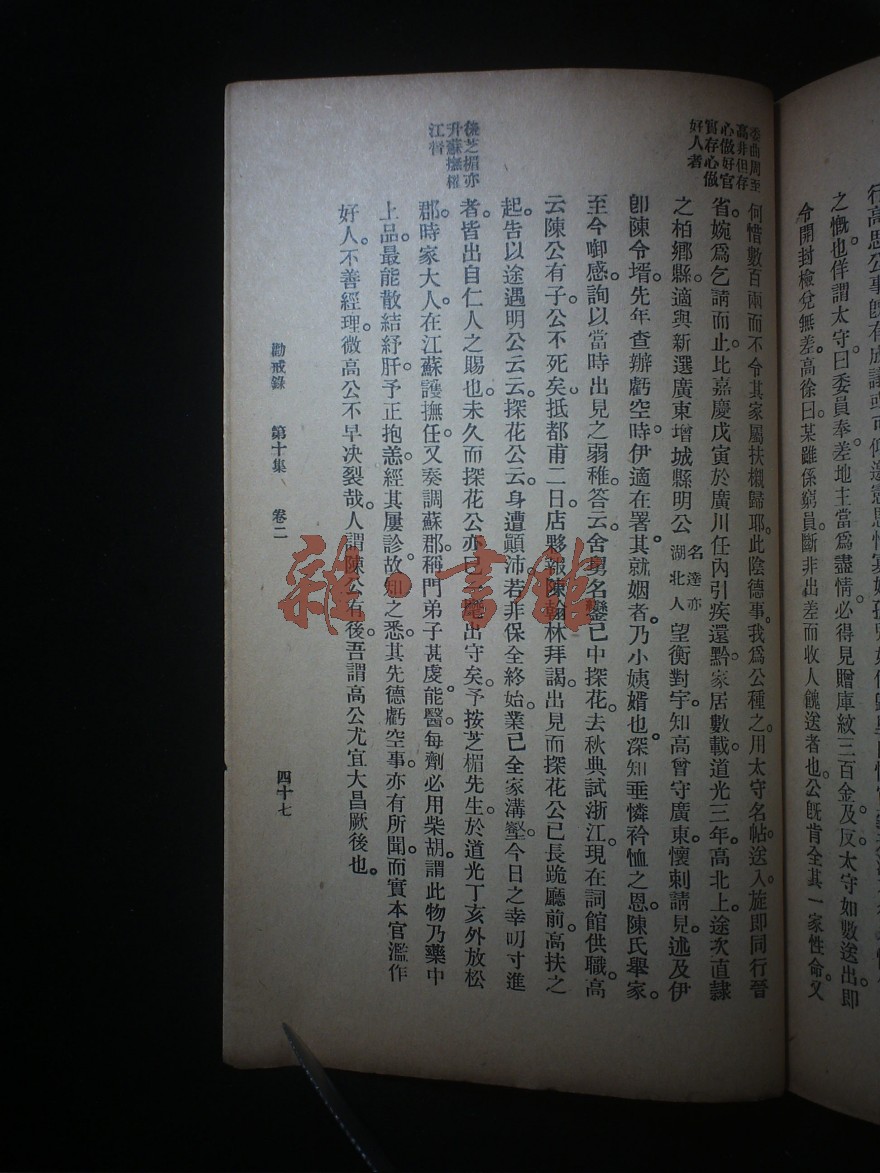 行高思公事既有成議或可仰邀憲恩
之慨也佯謂太守曰委員奉差地主當爲盡情必得見贈庫紋三百金及反太守如數送出卽
令開封檢兌無差高徐曰某雖係窮員斷非出差而收人餽送者也公既肯全其一家性命又
委曲周至
高非但存
心做好官
實存心做
好人者
何惜數百兩而不令其家屬扶櫬歸耶此陰德事我爲公種之用太守名帖送入旋卽同行晉
省。婉爲乞請而止比嘉慶戊寅於廣川任內引疾還黔家居數載道光三年高北上途次直隸
之柏鄉縣適與新選廣東增城縣明公名達亦湖北人望衡對宇知高曾守廣東懷刺請見述及伊
卽陳令壻先年查辦虧空時伊適在署其就姻者乃小姨婿也深知垂憐矜恤之恩陳氏舉家
至今啣感詢以當時出見之弱稚答云舍舅名鑾已中探花去秋典試浙江現在詞館供職高
云陳公有子公不死矣抵都甫二日店夥報陳翰林拜謁出見而探花公已長跪廳前高扶之
起告以途遇明公云云探花公云身遭顚沛若非保全終始業已全家溝壑今日之幸叨寸進
後芝楣亦
升蘇撫權
江督
者皆出自仁人之賜也未久而探花公亦已 麾出守矣予按芝楣先生於道光丁亥外放松
郡時家大人在江蘇護撫任又奏調蘇郡稱門弟子甚虔能醫每劑必用柴胡謂此物乃藥中
上品最能散結紓肝予正抱恙經其屢診故知之悉其先德虧空事亦有所聞而實本官濫作
好人不善經理微高公不早決裂哉人謂陳公有後吾謂高公尤宜大昌厥後也
勸戒錄 第十集 卷二 四十七
雜·書館